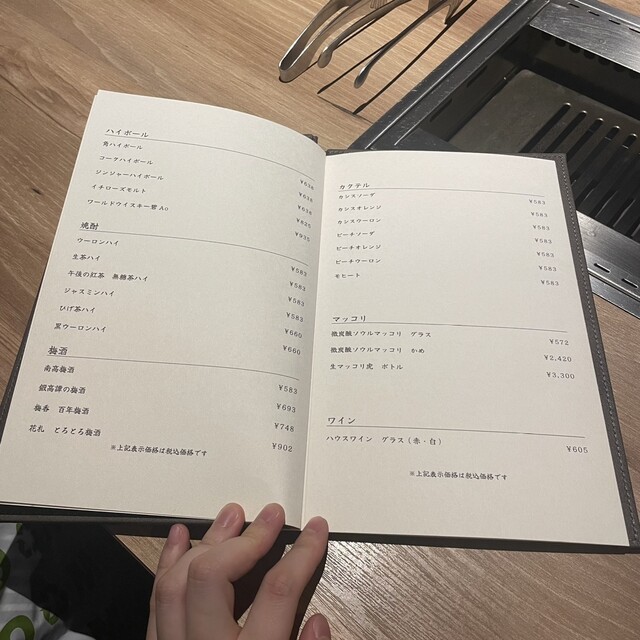 ハイボール
角ハイボール ¥638
コークハイボール ¥638
ジンジャーハイボール ¥638
イチローズモルト ¥825
ワールドウイスキー碧Ao ¥935
焼酎
ウーロンハイ ¥583
生茶ハイ ¥583
午後の紅茶 無糖茶ハイ ¥583
ジャスミンハイ ¥583
ひげ茶ハイ ¥660
黒ウーロンハイ ¥660
梅酒
南高梅酒 ¥583
鍛高譚の梅酒 ¥693
梅香 百年梅酒 ¥748
花札 とろとろ梅酒 ¥902
※上記表示価格は税込価格です
カクテル
カシスソーダ ¥583
カシスオレンジ ¥583
カシスウーロン ¥583
ピーチソーダ ¥583
ピーチオレンジ ¥583
ピーチウーロン ¥583
モヒート ¥583
マッコリ
微炭酸ソウルマッコリ グラス ¥572
微炭酸ソウルマッコリ かめ ¥2,420
生マッコリ虎 ボトル ¥3,300
ワイン
ハウスワイン グラス(赤・白) ¥605
※上記表示価格は税込価格です